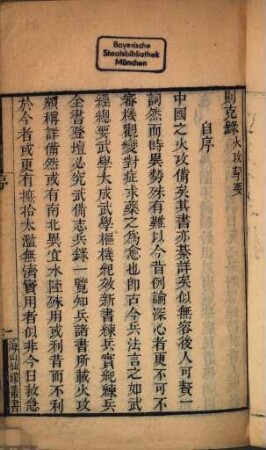 Bayerische
Staatsbibliothek
München
則克錄 火攻挈要
自序
中國之火攻備矣其書亦綦詳矣似無容後人可贅一
詞然而時異勢殊有難以今昔例論深心者更不可不
審機觀變對症求藥之為愈也即古今兵法言之如武
經總要武學大成武學樞機紀效新書練兵實紀練兵
全書登壇必究武備志兵錄一覽知兵諸書所載火攻
頗稱詳備然或有南北異宜水陸殊用或利昔而不利
於今者或更有摭拾太濫無濟實用者似非今日救急
序
一
海山仙館叢書